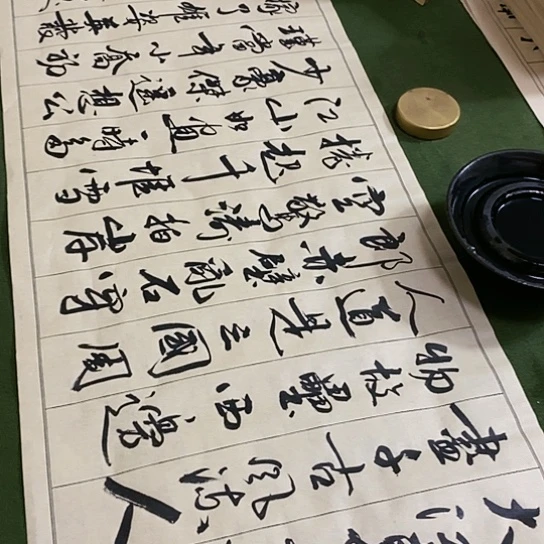 大江
盡千古風流人
物故壘西邊
人道是三國周
郎赤壁亂石穿
空驚濤拍岸
捲起千堆雪
江山如畫一時多
少豪傑遙想公
瑾當年小喬初
嫁了雄姿英發